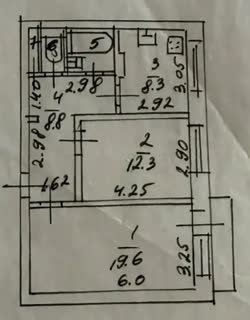 7
6
5
3
8.3
3.05
2.98
2.92
1.40
4
8.8
2.98
2
12.3
2.90
4.25
1.62
1
19.6
6.0
3.25